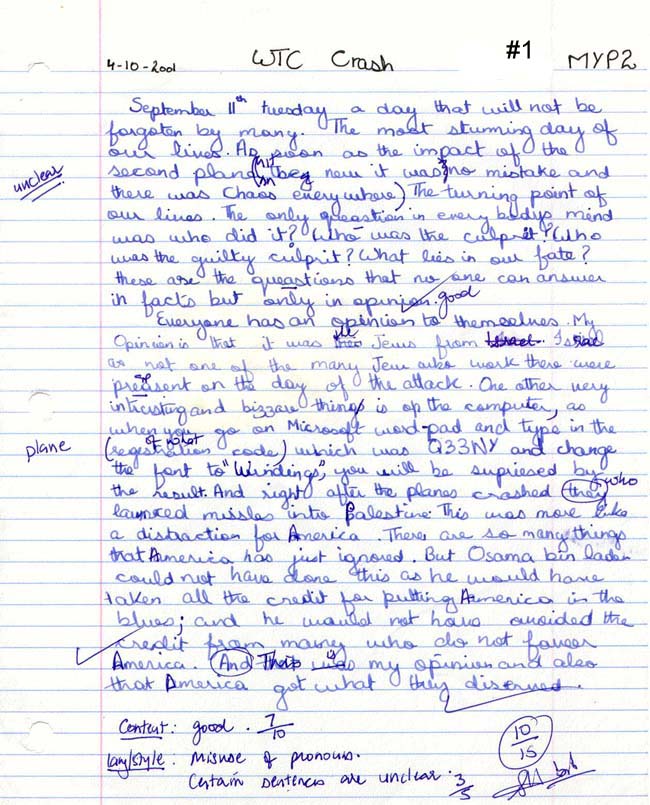 4-10-2001 WTC Crash #1 MYP2
September 11th tuesday a day that will not be
forgoten by many. The most stunning day of
our lives. As soon as the impact of the
unclear
second plane hit they new it was no mistake and
there was chaos everywhere) The turning point of
our lives. The only queastion in every bodys mind
was who did it? Who was the culprit? Who
was the guilty culprit? What lies in our fate?
these are the queastions that no one can answer
in facts but only in opinion. good
Everyone has an opinion to themselves. My
Opinion is that it was the Jews from Israel
as not one of the many Jew who work there were
present on the day of the attack. One other very
intresting and bizzare things is op the computer, as
when you go on Microsoft word-pad and type in the
plane
of what
(registration code) which was Q33NY and change
the font to "Windings", you will be supriesed by
the result. And right after the planes crashed they who
launced missles into Palestine. This was more like
a distraction for America. There are so many things
that America has just ignored. But Osama bin laden
could not have done this as he would have
taken all the credit for putting America in the
blues; and he would not have avoided the
credit from many who do not favour
America. And is my opinion and also
that America got what they diserved.
Content: good. 7/10
10/15
lang/style: Misuse of pronouns.
Certain sentences are unclear. 3/5